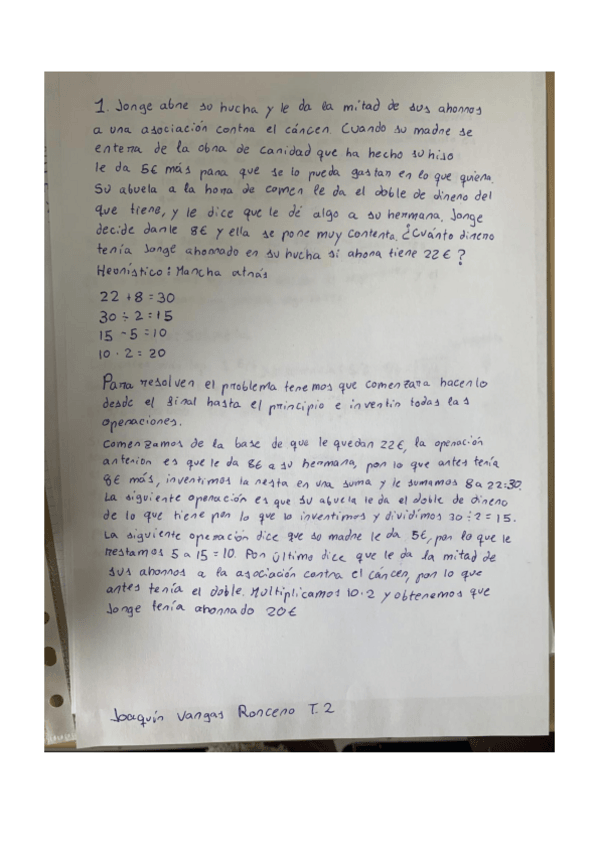 1. Jorge abre su hucha y le da la mitad de sus ahorros
a una asociación contra el cáncer. Cuando su madre se
entera de la obra de caridad que ha hecho su hijo
le da 5€ más para que se lo pueda gastar en lo que quiera.
Su abuela a la hora de comer le da el doble de dinero del
que tiene, y le dice que le dé algo a su hermana. Jorge
decide darle 8€ y ella se pone muy contenta. ¿Cuánto dinero
tenía Jorge ahorrado en su hucha si ahora tiene 22€?
Heurístico: Marcha atrás
22 + 8 = 30
30 ÷ 2 = 15
15 - 5 = 10
10 · 2 = 20
Para resolver el problema tenemos que comenzar a hacerlo
desde el final hasta el principio e invertir todas las
operaciones.
Comenzamos de la base de que le quedan 22€, la operación
anterior es que le da 8€ a su hermana, por lo que antes tenía
8€ más, invertimos la resta en una suma y le sumamos 8 a 22:30.
La siguiente operación es que su abuela le da el doble de dinero
de lo que tiene por lo que lo invertimos y dividimos 30 ÷ 2 = 15.
La siguiente operación dice que su madre le da 5€, por lo que le
restamos 5 a 15 = 10. Por último dice que le da la mitad de
sus ahorros a la asociación contra el cáncer, por lo que
antes tenía el doble. Multiplicamos 10·2 y obtenemos que
Jorge tenía ahorrado 20€
Joaquín Vargas Ronceno T.2